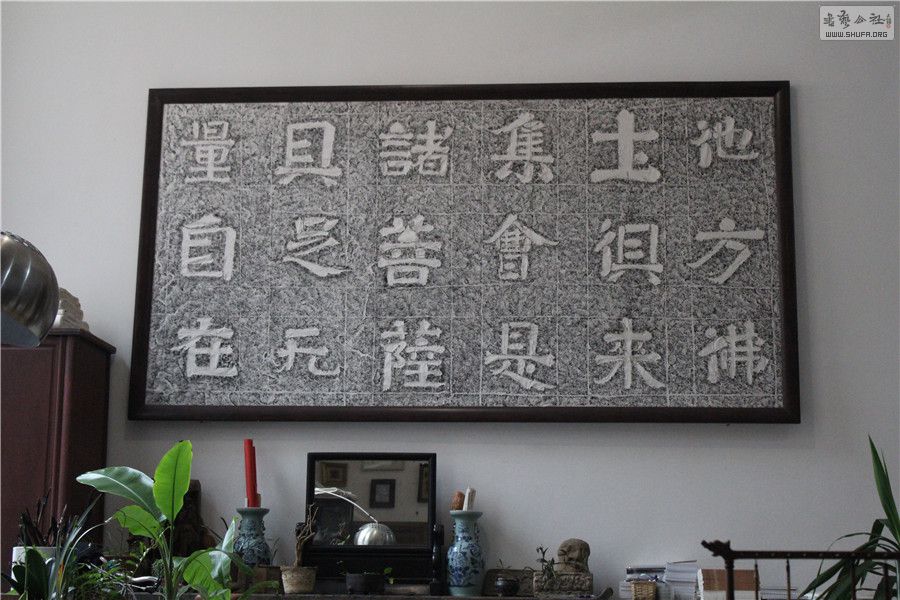 池方佛
土俱来
集會是
諸善薩
具足无
量自在
书艺公社
WWW.SHUFA.ORG